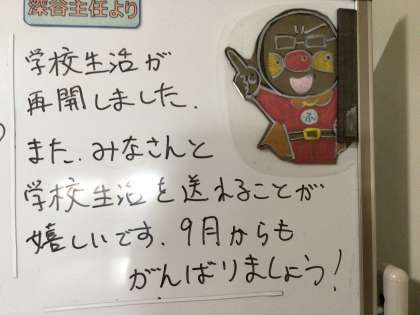 深谷主任より
学校生活が
再開しました.
また.みなさんと
学校生活を送れることが
嬉しいです.9月からも
がんばりましょう!
ふ